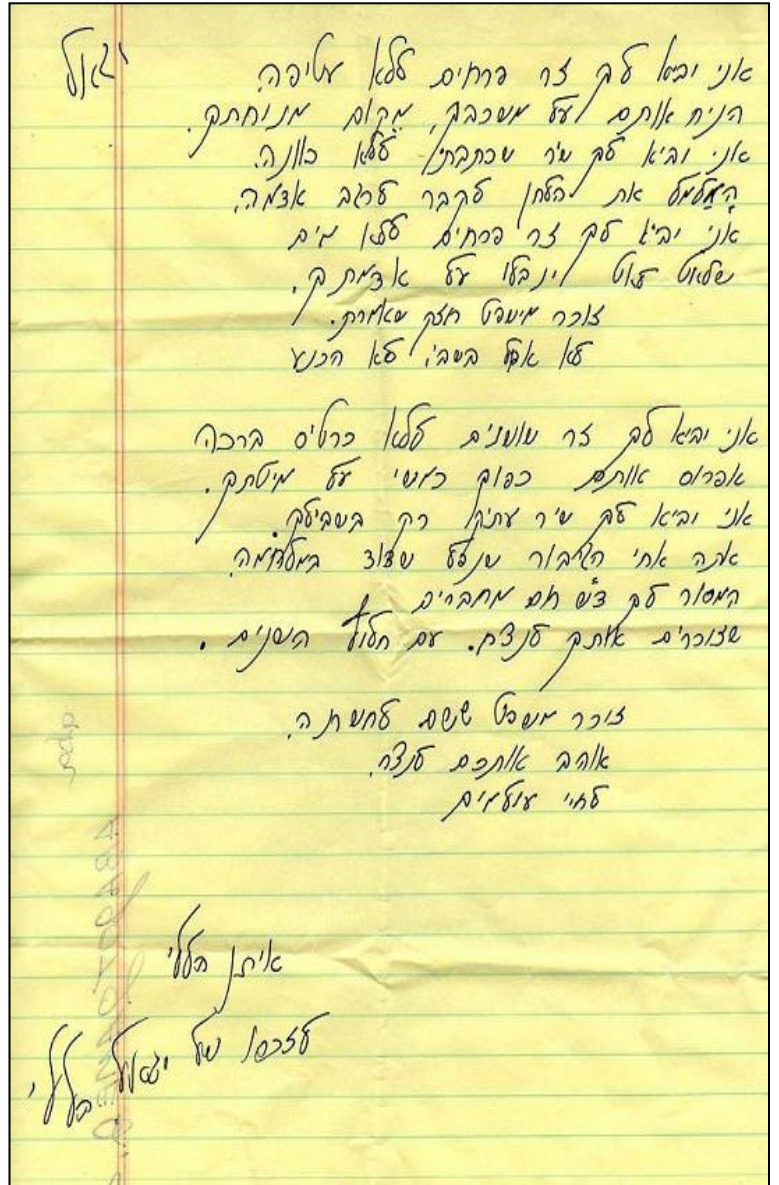 יגאל
אני יביא לך זר פרחים ללא עטיפה.
הניח אותם על משכבך, מקום מנוחתך.
אני יביא לך שיר שכתבתי ללא כוונה.
המלמל את הלחן לקבר לרגב אדמה.
אני יביא לך זר פרחים ללא מים
שלאט לאט ינבלו על אדמתך.
זוכר משפט חזק שאמרת.
לא אפל בשבי, לא הכנע
אני יביא לך זר שושנים ללא כרטיס ברכה
אפרוס אותם כפוך משי על מיטתך.
אני יביא לך שיר עתיק רק בשבילך.
אתה אחי הגיבור שנפל שדוד במלחמה.
המסור לך ד"ש חם מחברים
שזוכרים אותך לנצח. עם חלוף השנים.
זוכר משפט ששם לחשת ה.
אוהב אתכם לנצח.
לחיי עולמים
איתן הללי
לזכרו של יגאל הללי